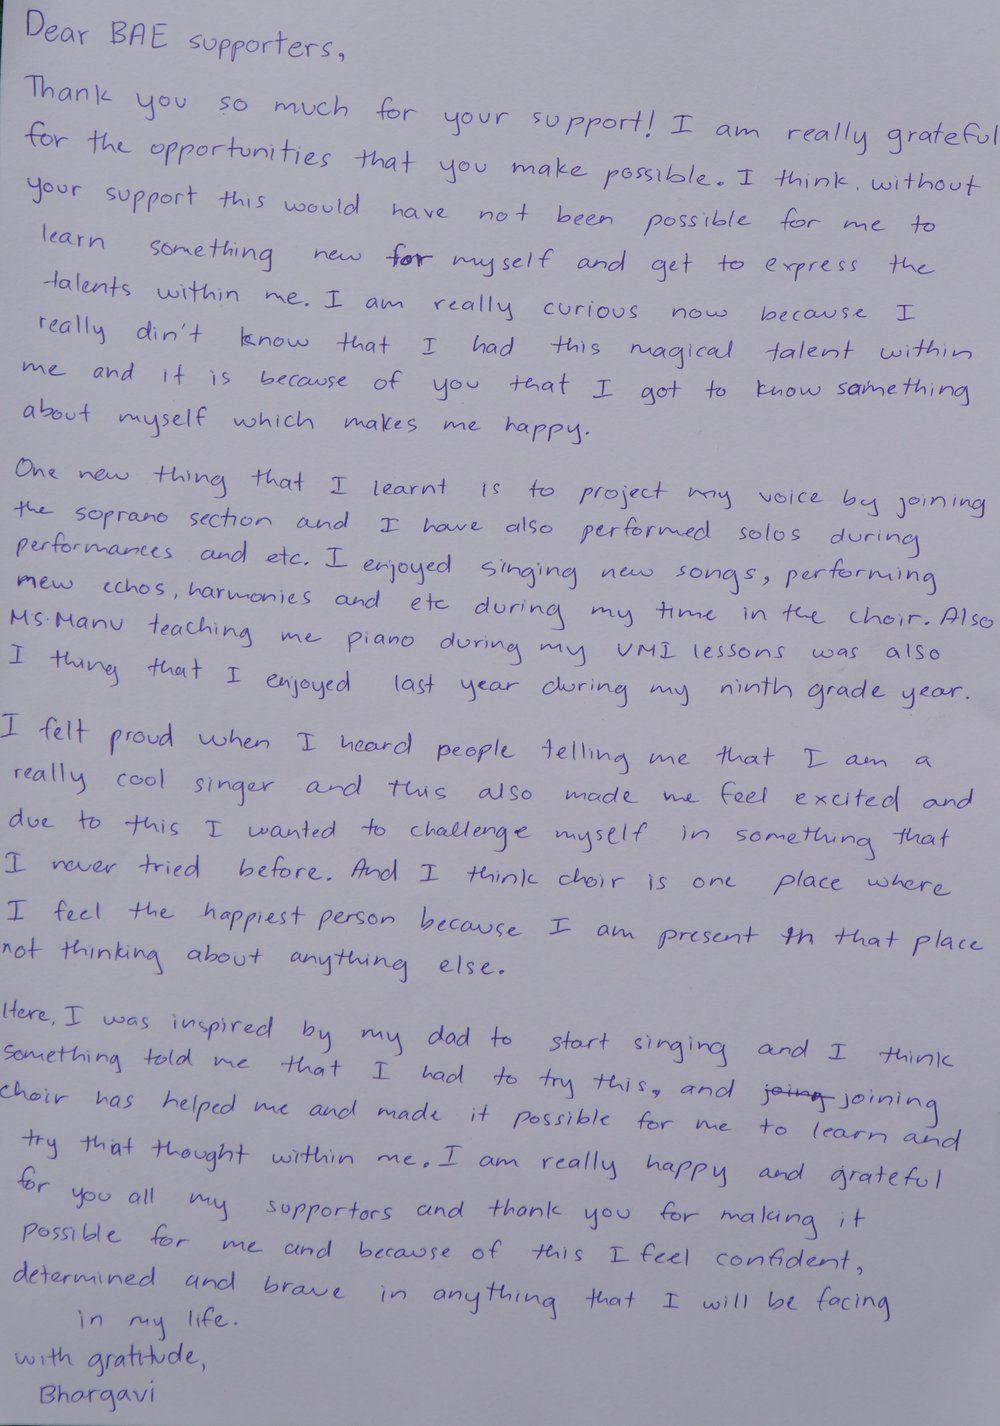 Dear BAE supporters,
Thank you so much for your support! I am really grateful
for the opportunities that you make possible. I think, without
your support this would have not been possible for me to
learn something new for myself and get to express the
talents within me. I am really curious now because I
really din't know that I had this magical talent within
me and it is because of you that I got to know something
about myself which makes me happy.
One new thing that I learnt is to project my voice by joining
the soprano section and I have also performed solos during
performances and etc. I enjoyed singing new songs, performing
mew echos, harmonies and etc during my time in the choir. Also
Ms. Manu teaching me piano during my VMI lessons was also
I thing that I enjoyed last year during my ninth grade year.
I felt proud when I heard people telling me that I am a
really cool singer and this also made me feel excited and
due to this I wanted to challenge myself in something that
I never tried before. And I think choir is one place where
I feel the happiest person because I am present in that place
not thinking about anything else.
Here, I was inspired by my dad to start singing and I think
something told me that I had to try this, and joing joining
choir has helped me and made it possible for me to learn and
try that thought within me. I am really happy and grateful
for you all my supportors and thank you for making it
possible for me and because of this I feel confident,
determined and brave in anything that I will be facing
in my life.
with gratitude,
Bhargavi